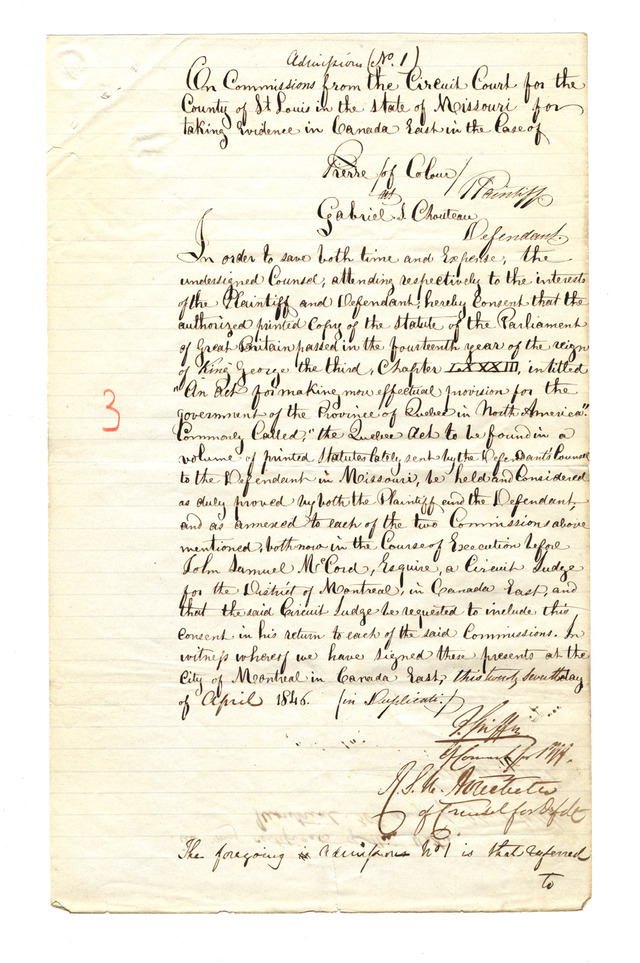 Admission (No. 1)
On Commissions from the Circuit Court for the
County of St Louis in the state of Missouri for
taking Evidence in Canada East in the Case of
Pierre (of Colour)
Plaintiff
vs
Gabriel S Chouteau
Defendant.
In order to save both time and Expense, the
undersigned Counsel, attending respectively to the interests
of the Plaintiff and Defendant, hereby Consent that the
authorized printed Copy of the Statute of the Parliament
of Great Britain passed in the fourteenth year of the reign
of King George the third, Chapter LXXXIII, intitled
"An Act for making more effectual provision for the
government of the Province of Quebec in North America."
Commonly Called, "the Quebec Act to be found in a
volume of printed Statutes lately sent by the Defendant's Counsel
to the Defendant in Missouri, be held and Considered
as duly proved by both the Plaintiff and the Defendant,
and as annexed to each of the two Commissions above
mentioned, both now in the Course of Execution before
John Samuel McCord, Esquire, a Circuit Judge
for the District of Montreal, in Canada East, and
that the said Circuit Judge be requested to include this
consent in his return to each of the said Commissions. In
witness whereof we have signed these presents at the
City of Montreal in Canada East, this twenty seventh day
of April 1846. (in Duplicate.)
Griffin
of Counsel for Plff.
of Counsel for Defdt
The foregoing admission No 1 is that referred
to
3